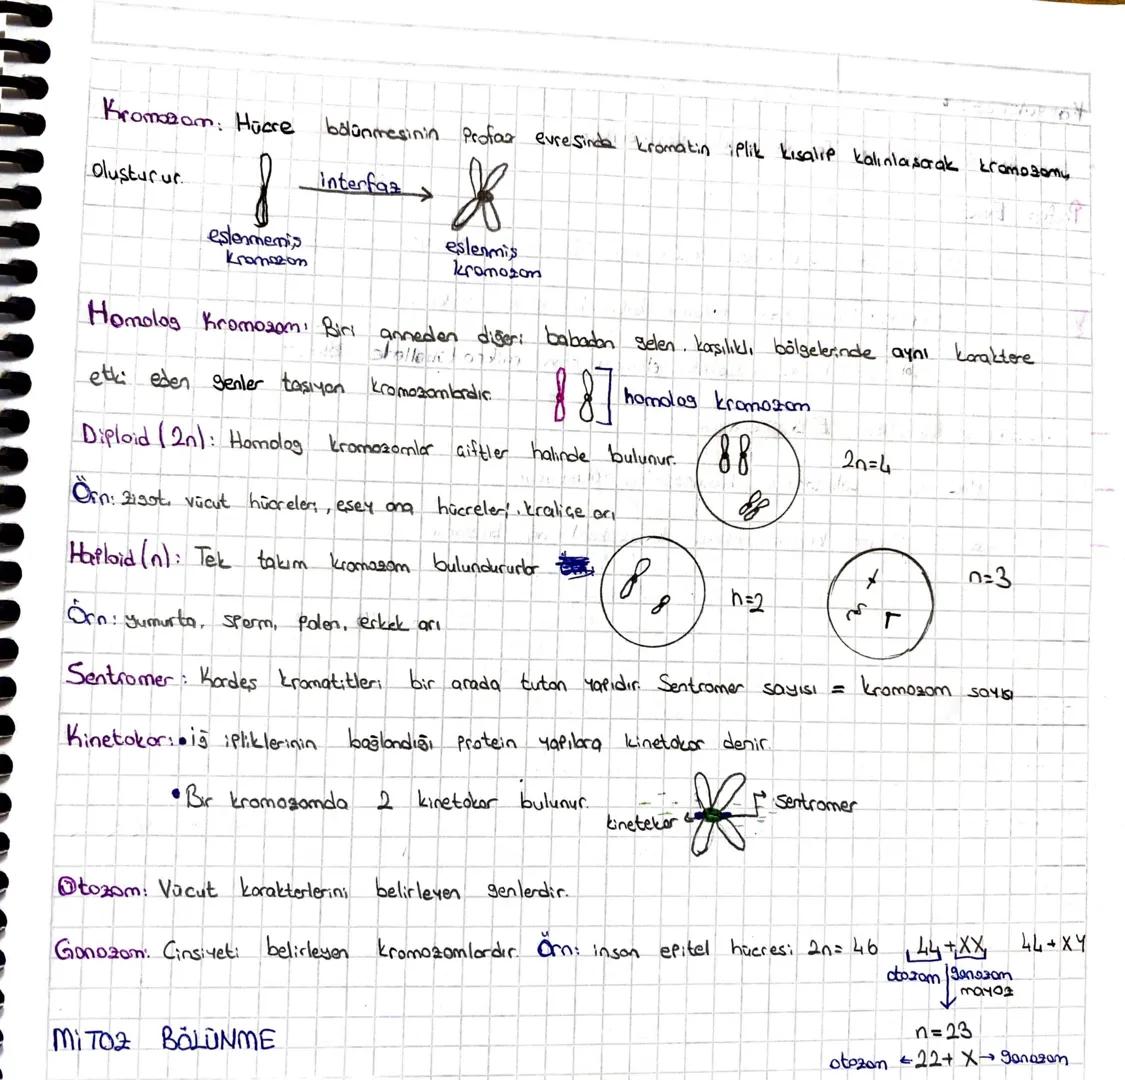 Kromozom: Hücre bölünmesinin Profaz evresinde kromatin iplik kısalıp kalınlaşarak kromozomu
oluşturur.
interfaz
eşlenmemiş
kromozon
eşlenmiş
kromozom
Homolog Kromozom: Biri anneden diğeri babadan gelen, karşılıklı bölgelerinde aynı karaktere
etki eden genler taşıyan kromozomlardır.
homolog kromozom
Diploid (2n): Homolog kromozomlar çiftler halinde bulunur.
2n=4
Örn: zigot, vücut hücreleri, eşey ana hücreleri, kraliçe arı
Haploid (n): Tek takım kromozom bulundururlar
n=2
n=3
Örn: yumurta, sperm, polen, erkek arı
Sentromer: Kardeş kromatitleri bir arada tutan yapıdır. Sentromer sayısı = kromozom sayısı
Kinetokor: • iğ ipliklerinin bağlandığı protein yapılara kinetokor denir.
• Bir kromozomda 2 kinetokor bulunur.
sentromer
kinetekor
Otozom: Vücut karakterlerini belirleyen genlerdir.
Gonozom: Cinsiyeti belirleyen kromozomlardır. Örn: insan epitel hücresi 2n=46 44+XX 44+XY
otozom gonozom
mayoz
MİTOZ BÖLÜNME
n=23
otozom ←22+X→ gonozom